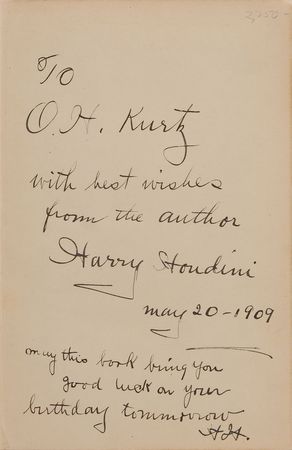 2,250-
To
O. H. Kurtz
with best wishes
from the author
Harry Houdini
may 20-1909
may this book bring you
good luck on your
birthday tommorrow
H.H.